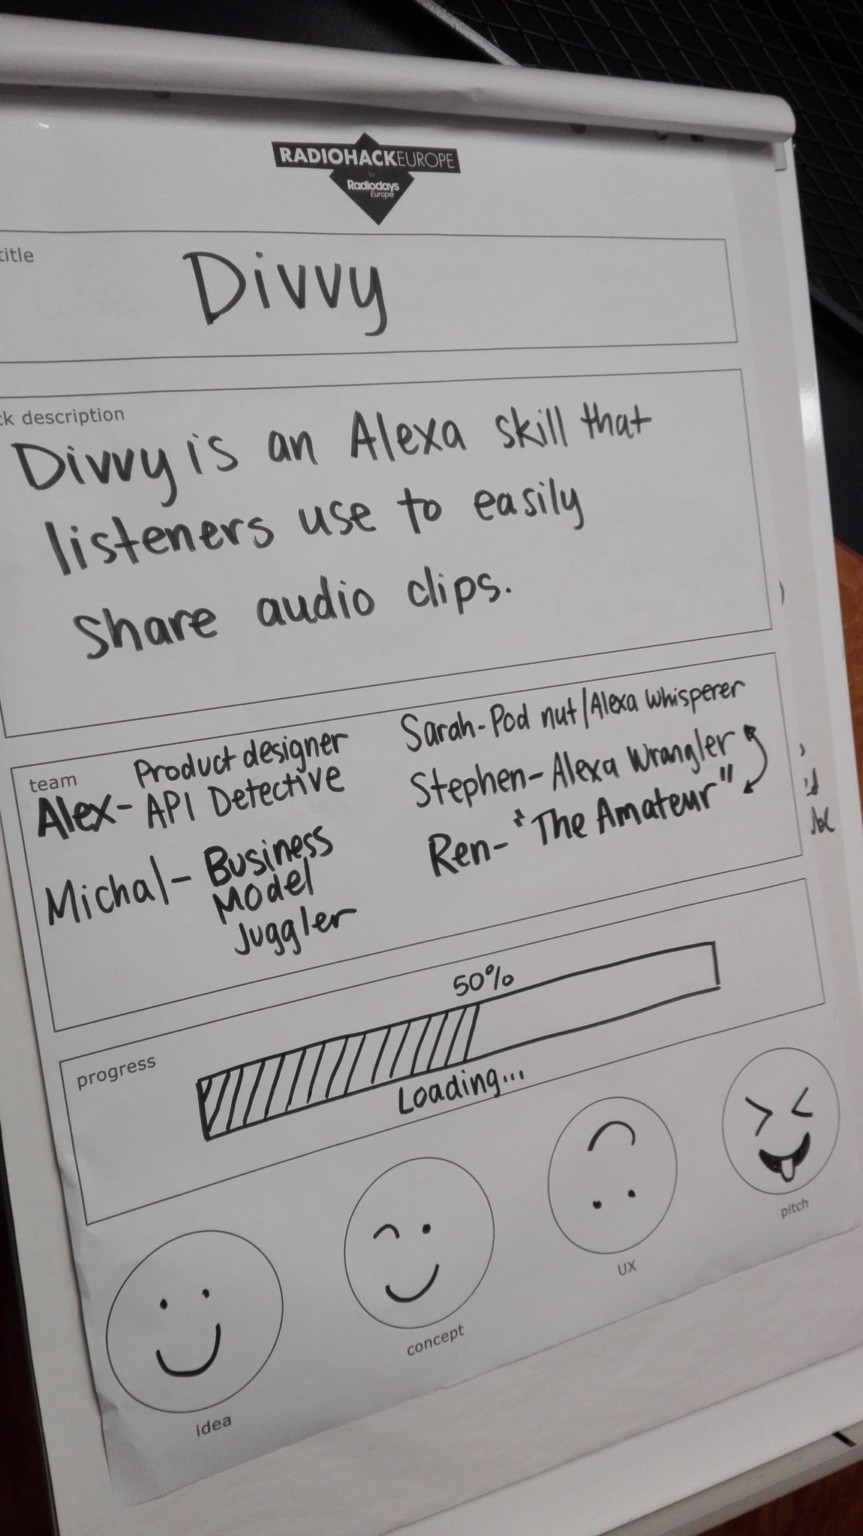 RADIOHACKEUROPE
by
Radiodays
Europe
title
Divvy
ck description
Divvy is an Alexa skill that
listeners use to easily
share audio clips.
team
Alex- Product designer
API Detective
Michal- Business
Model
Juggler
Sarah-Pod nut/Alexa whisperer
Stephen- Alexa Wrangler
Ren- "The Amateur"
progress
50%
Loading...
idea
concept
UX
pitch